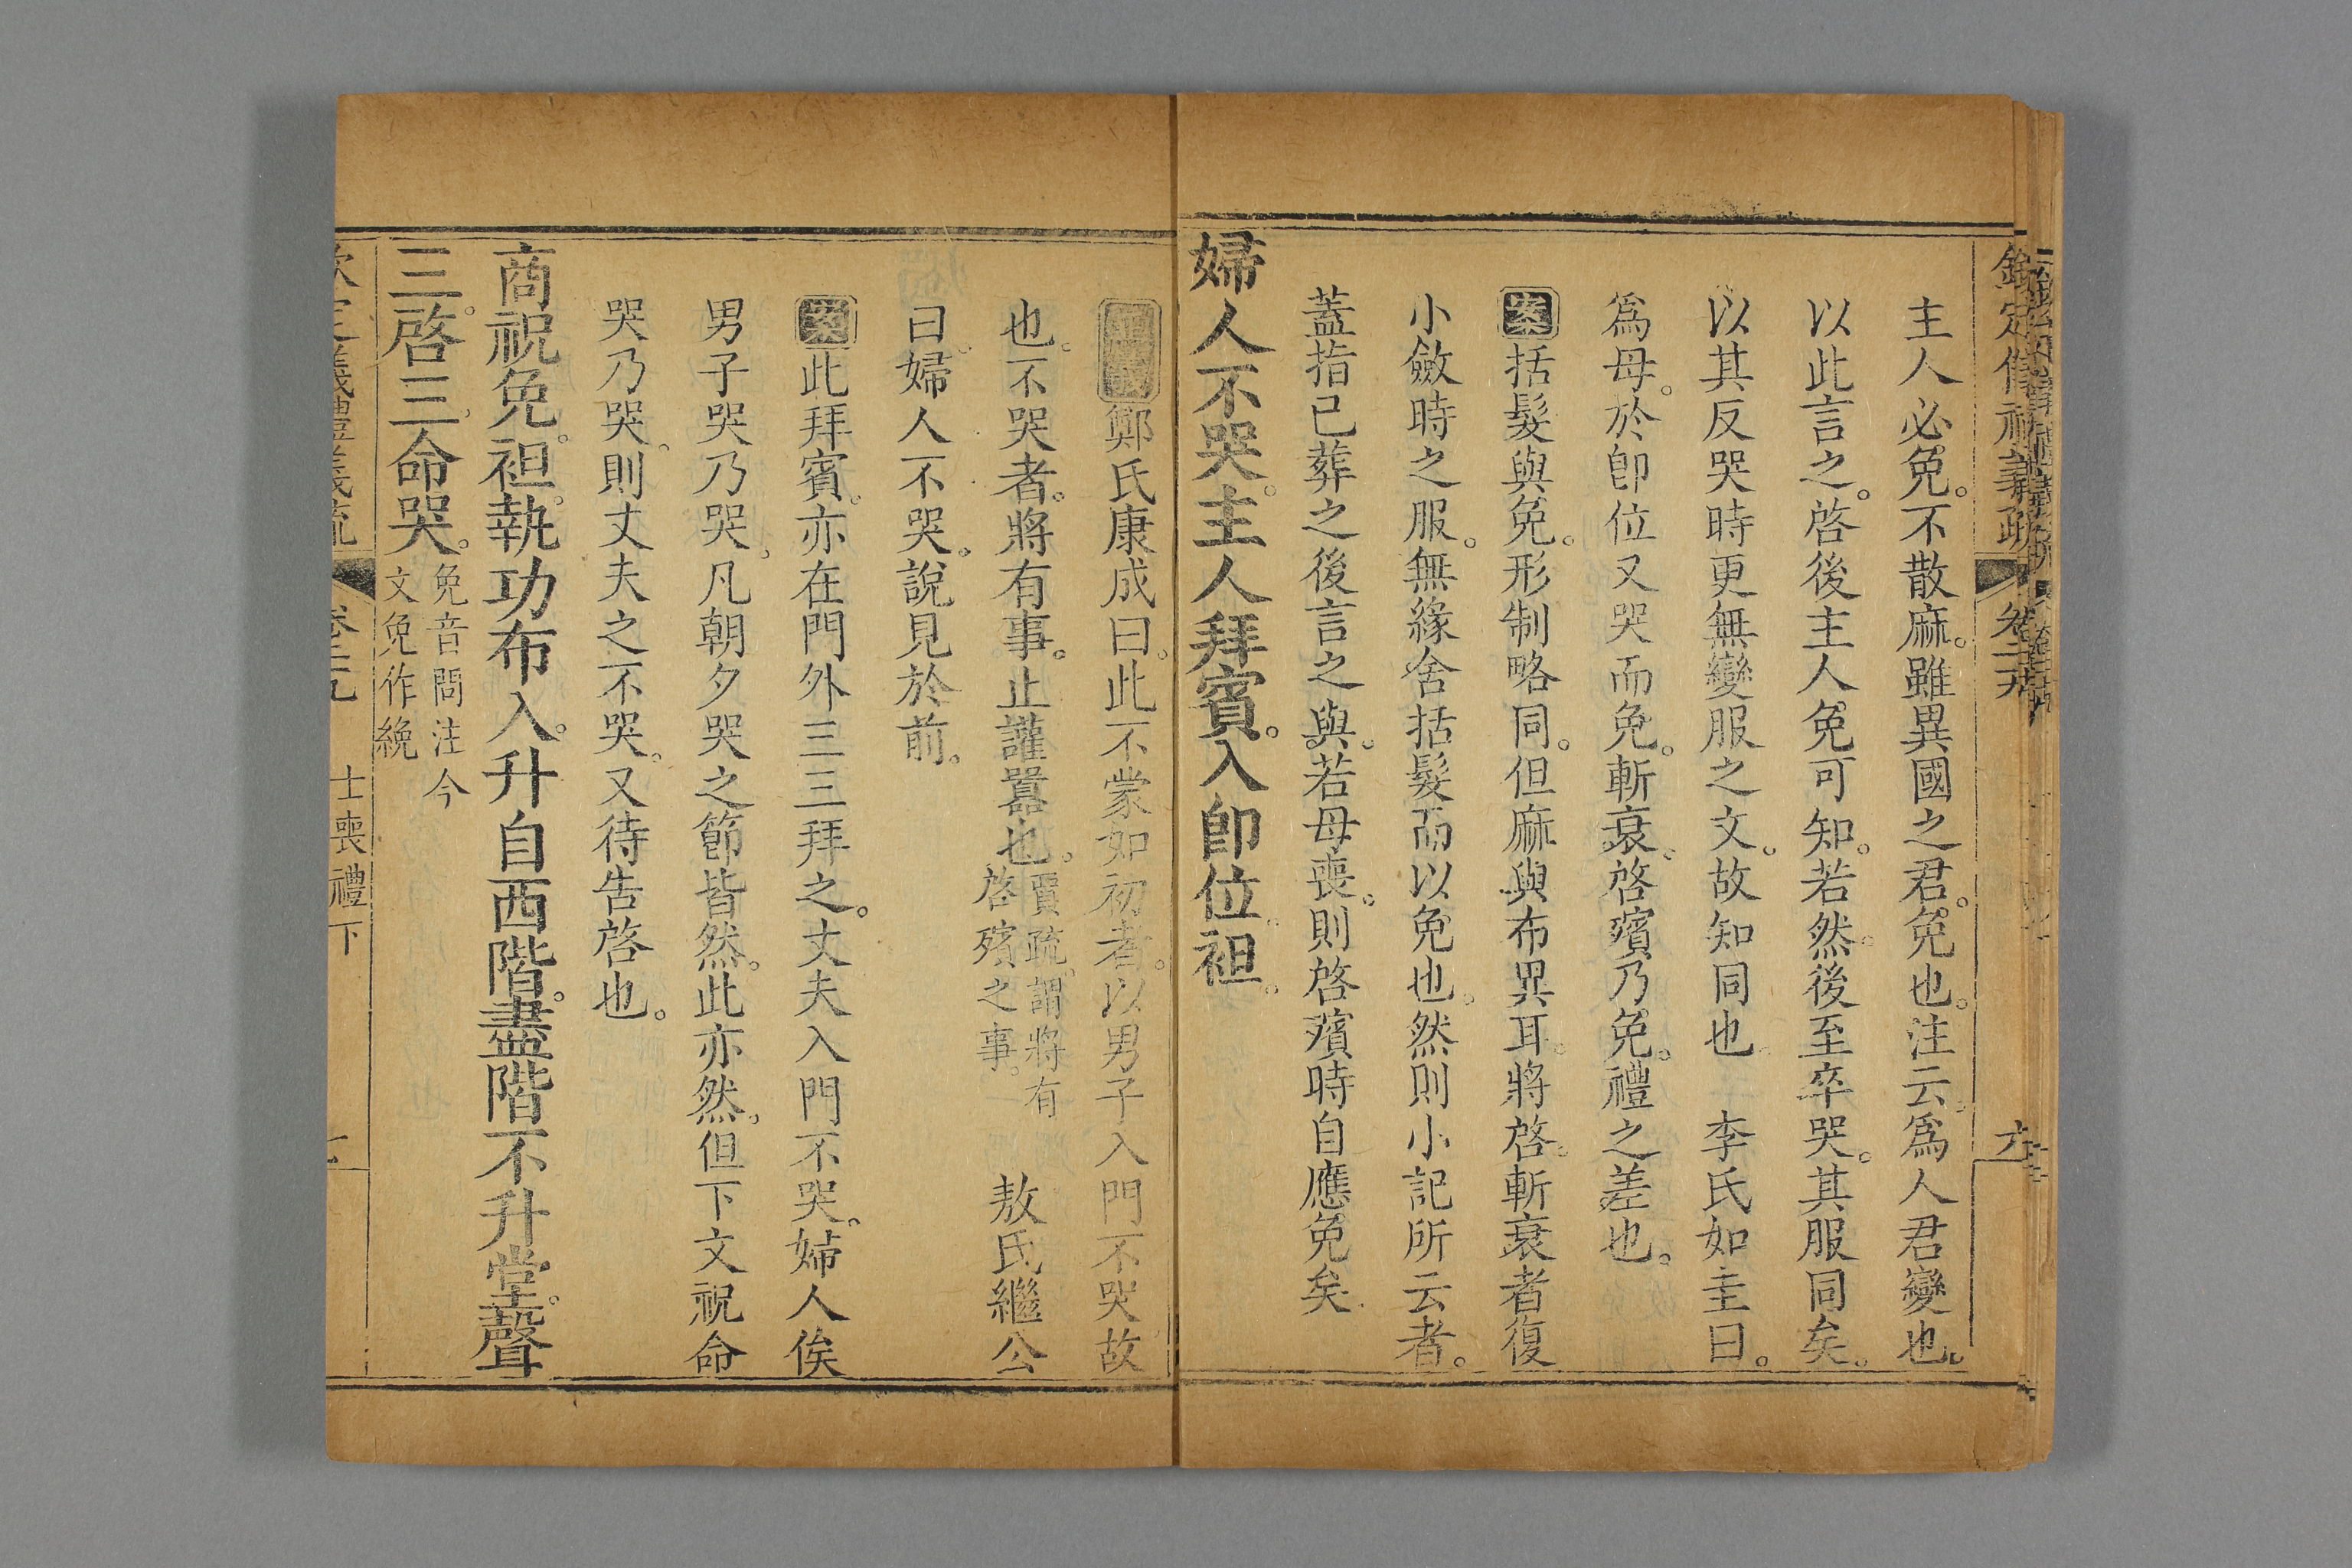 欽定儀禮義疏 卷二九 六
主人必免。不散麻。雖異國之君。免也。注云。爲人君變也。
以此言之。啓後主人免可知。若然。後至卒哭。其服同矣。
以其反哭時更無變服之文。故知同也 李氏如圭曰。
爲母。於卽位又哭而免。斬衰。啓殯乃免。禮之差也。
案括髮與免。形制略同。但麻與布異耳。將啓。斬衰者復
小斂時之服。無緣舍括髮而以免也。然則小記所云者。
蓋指已葬之後言之與。若母喪。則啓殯時自應免矣。
婦人不哭。主人拜賓。入卽位。袒。
鄭氏康成曰。此不蒙如初者。以男子入門不哭故
也。不哭者。將有事。止讙囂也。賈疏。謂將有啓殯之事。 敖氏繼公
曰。婦人不哭。說見於前。
案此拜賓。亦在門外三三拜之。丈夫入門不哭。婦人俟
男子哭乃哭。凡朝夕哭之節皆然。此亦然。但下文祝命
哭乃哭。則丈夫之不哭。又待告啓也。
商祝免。袒。執功布入。升自西階。盡階不升堂。聲
三。啓三。命哭。免音問注今文免作絻
欽定儀禮義疏 卷二九 士喪禮下